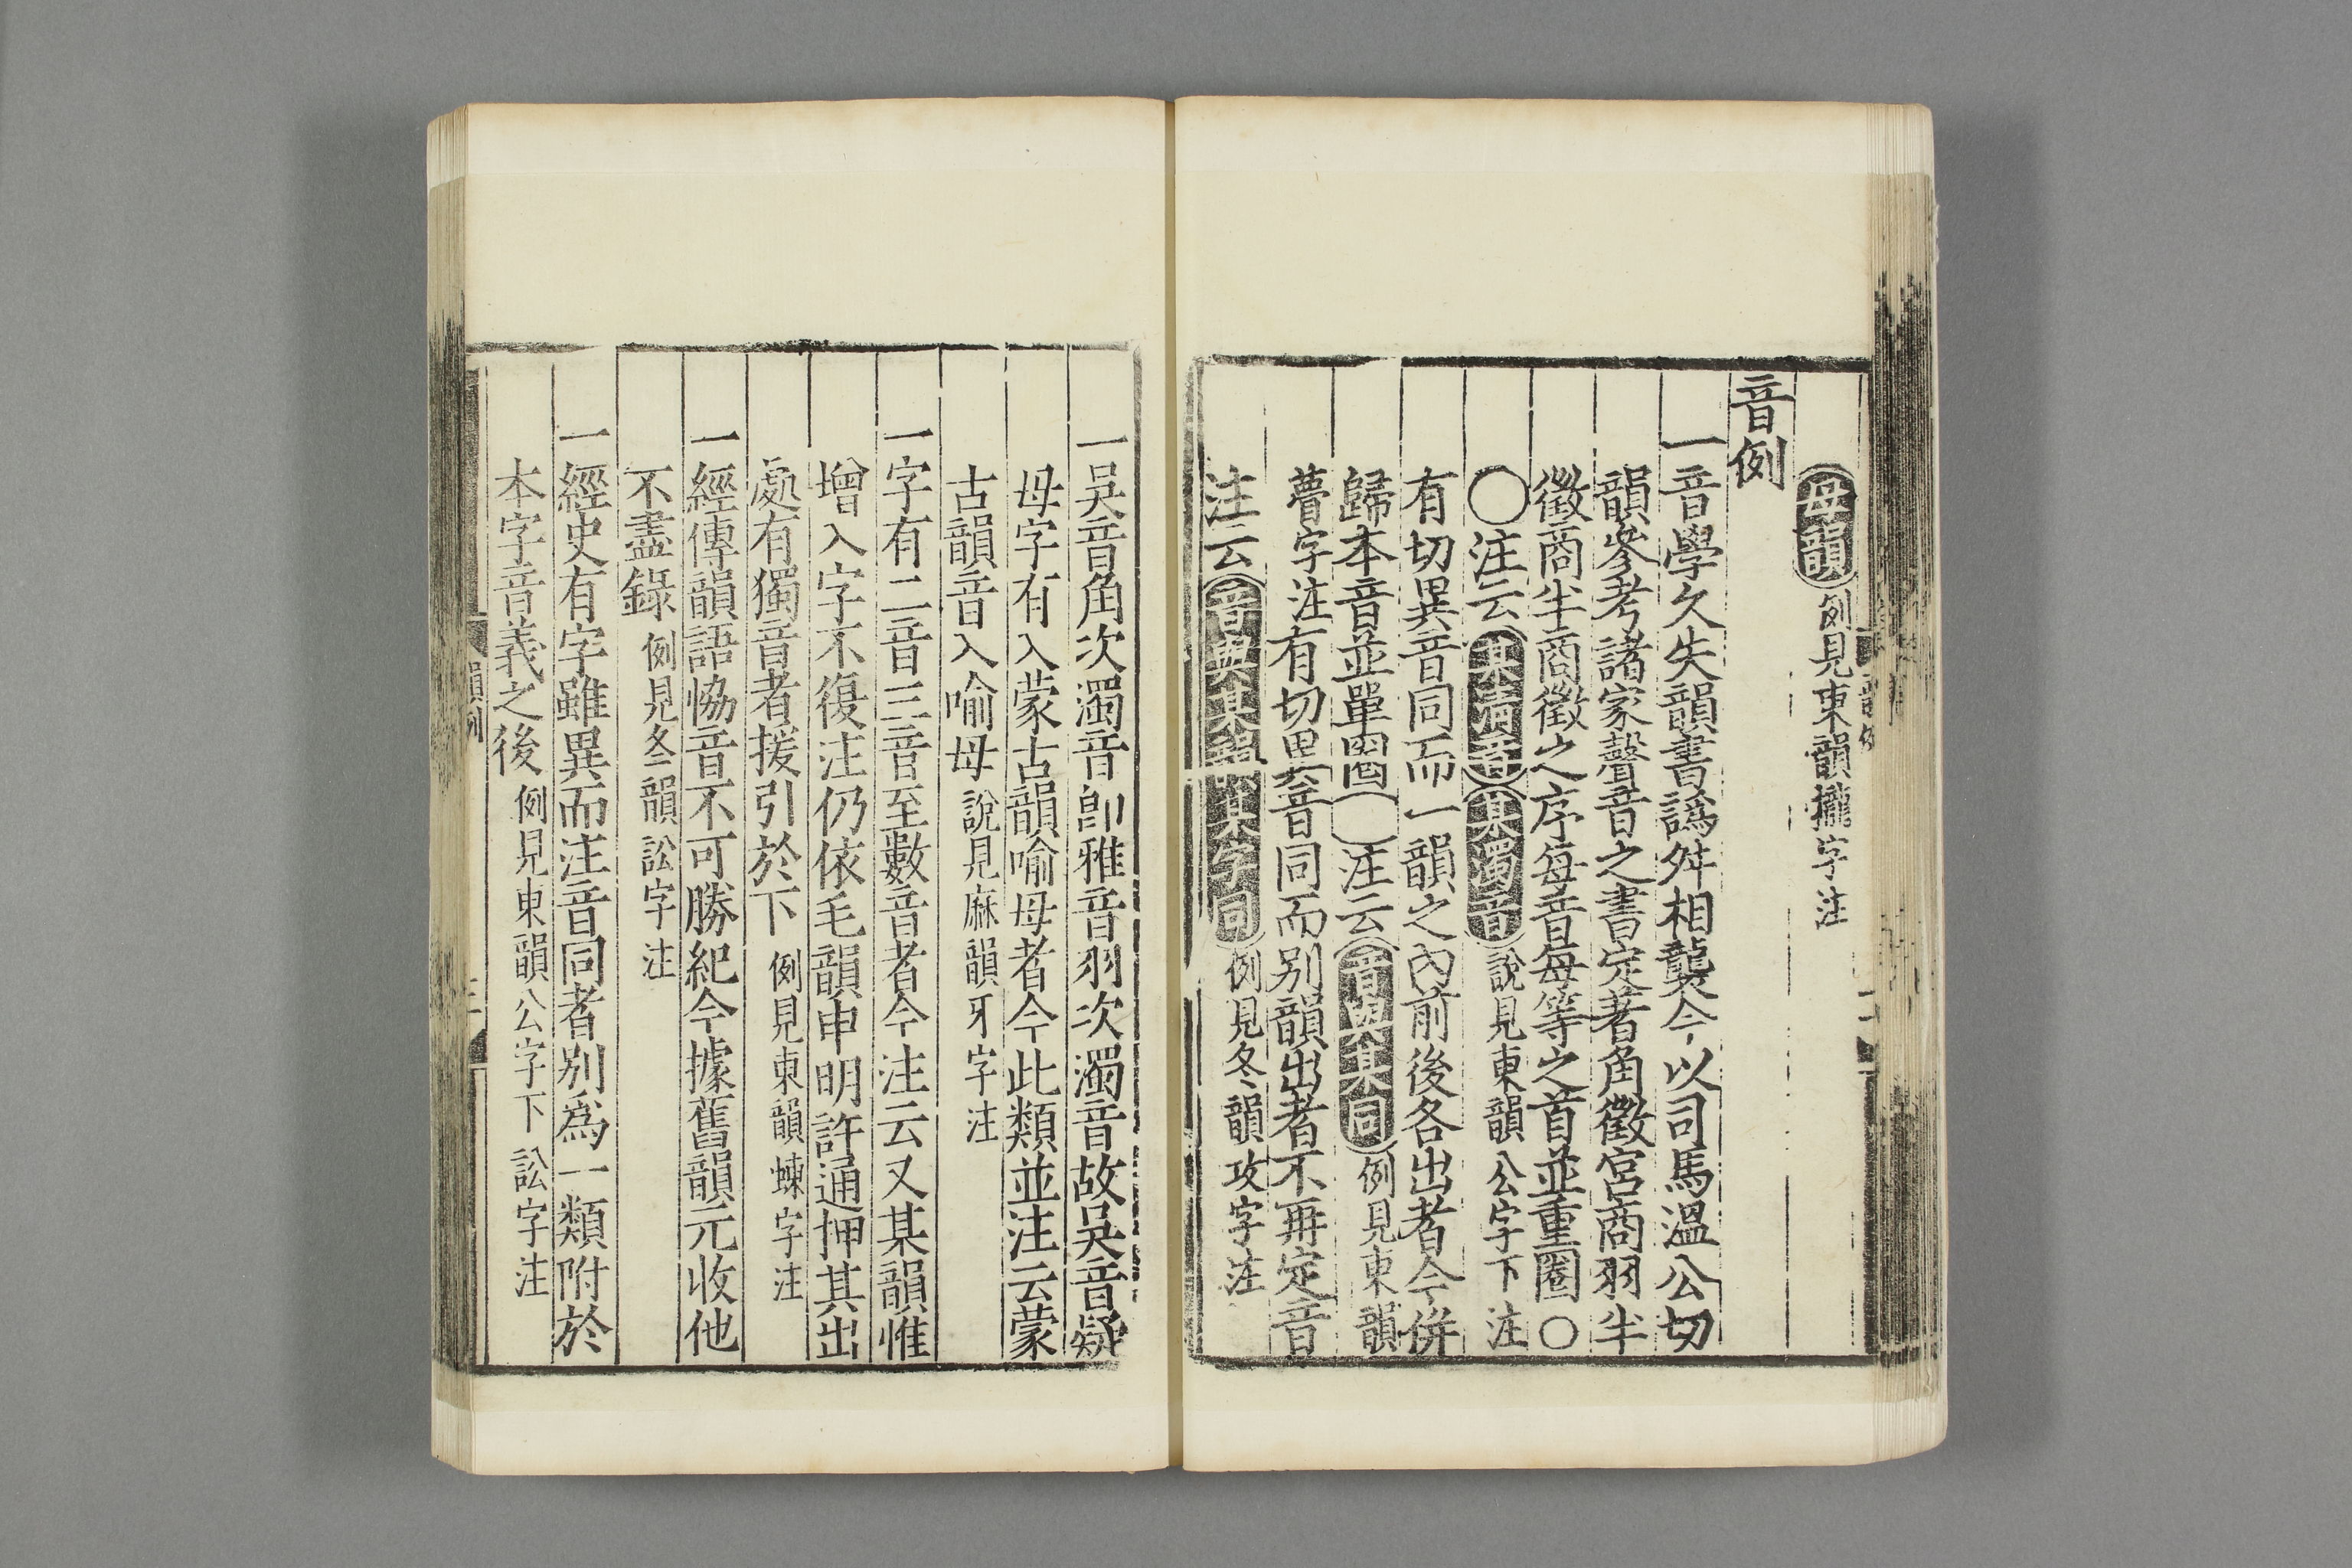 母韻例見東韻攏字注
音例
一音學久失韻書譌舛相襲今以司馬溫公切
韻參考諸家聲音之書定著角徵宮商羽半
徵商半商徵之序每音每等之首並重圈○
○注云某清音某濁音說見東韻公字下注
有切異音同而一韻之內前後各出者今併
歸本音並單圈注云音與某同例見東韻
瞢字注有切異音同而别韻出者不再定音
注云音與某韻某字同例見冬韻攻字注
一吴音角次濁音卽雅音羽次濁音故吴音疑
母字有入蒙古韻喻母者今此類並注云蒙
古韻音入喻母說見麻韻牙字注
一字有二音三音至數音者今注云又某韻惟
增入字不復注仍依毛韻申明許通押其出
處有獨音者援引於下例見東韻蝀字注
一經傳韻語恊音不可勝紀今據舊韻元收他
不盡錄例見冬韻訟字注
一經史有字雖異而注音同者别爲一類附於
本字音義之後例見東韻公字下訟字注
韻例